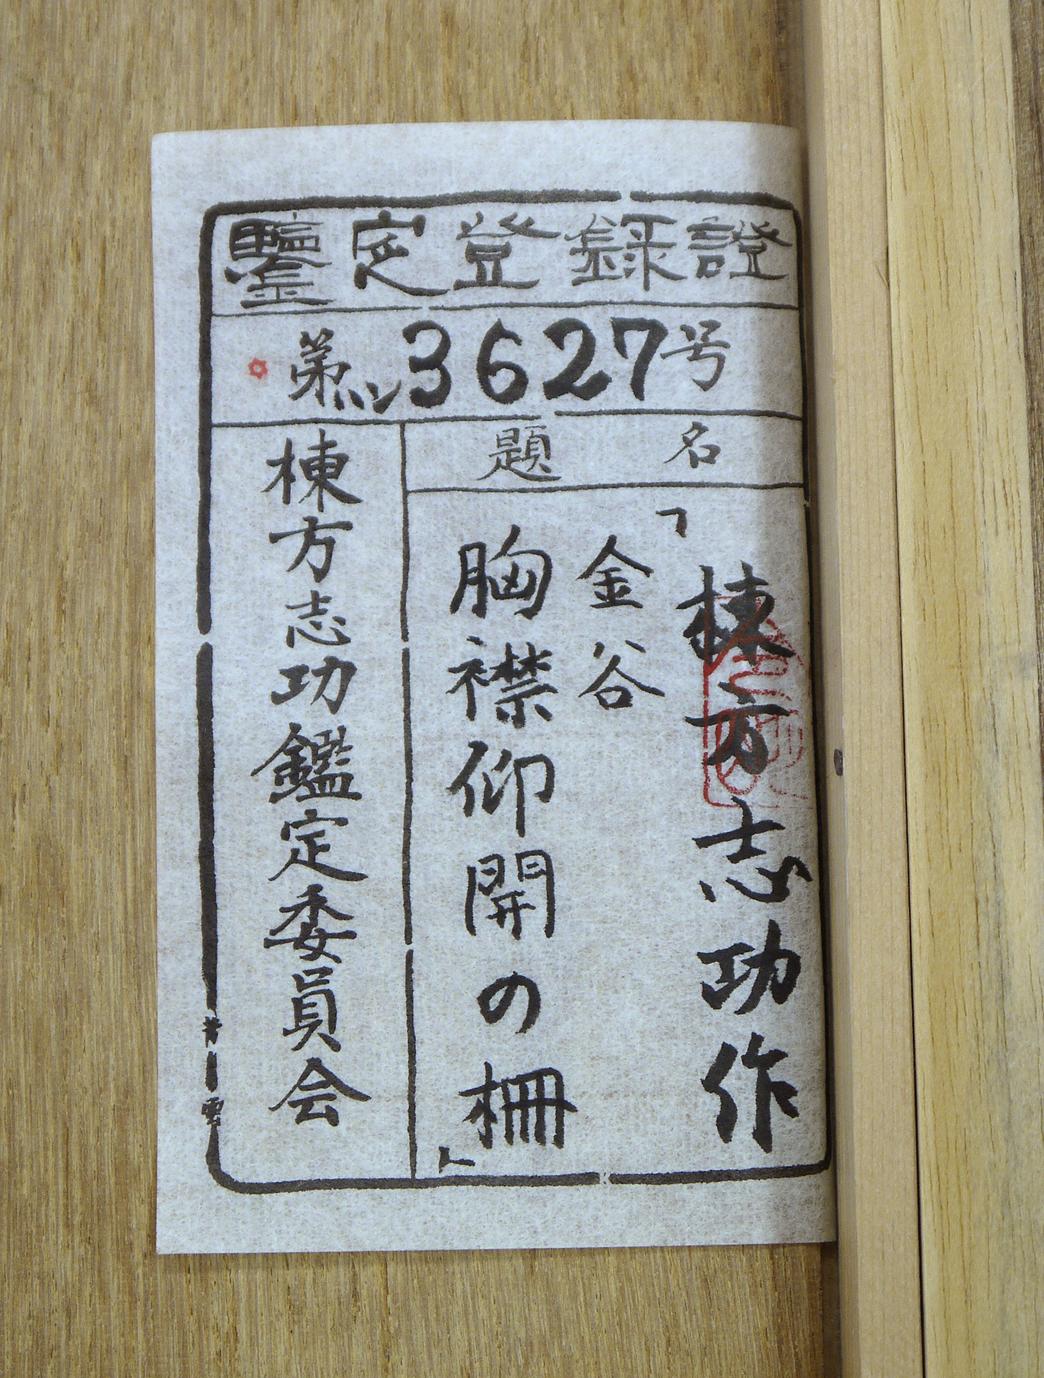 鑒定登録證
第ハン3627号
題名
棟方志功作
「金谷
胸襟仰開の柵」
棟方志功鑑定委員会